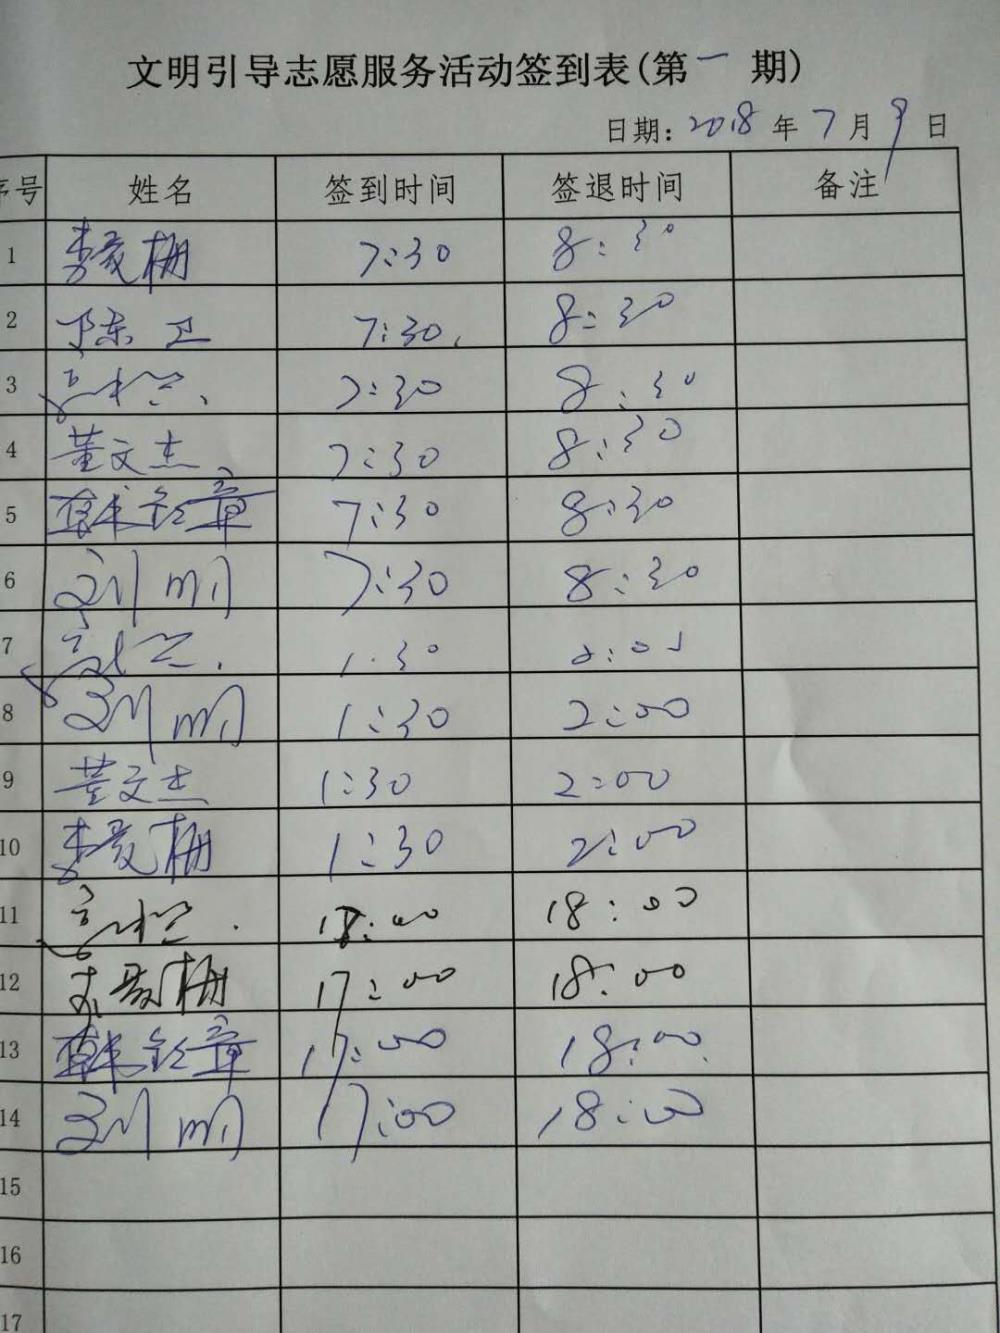 文明引导志愿服务活动签到表(第一期)
日期:2018年7月9日
序号 姓名 签到时间 签退时间 备注
1 7:30 8:30
2 陈卫 7:30 8:30
3 7:30 8:30
4 董文杰 7:30 8:30
5 章 7:30 8:30
6 刘明 7:30 8:30
7 1:30
8 刘明 1:30 2:00
9 董文杰 1:30 2:00
10 1:30 2:00
11 18:00
12 17:00 18:00
13 章 17:00 18:00
14 刘明 17:00 18:00
15
16
17